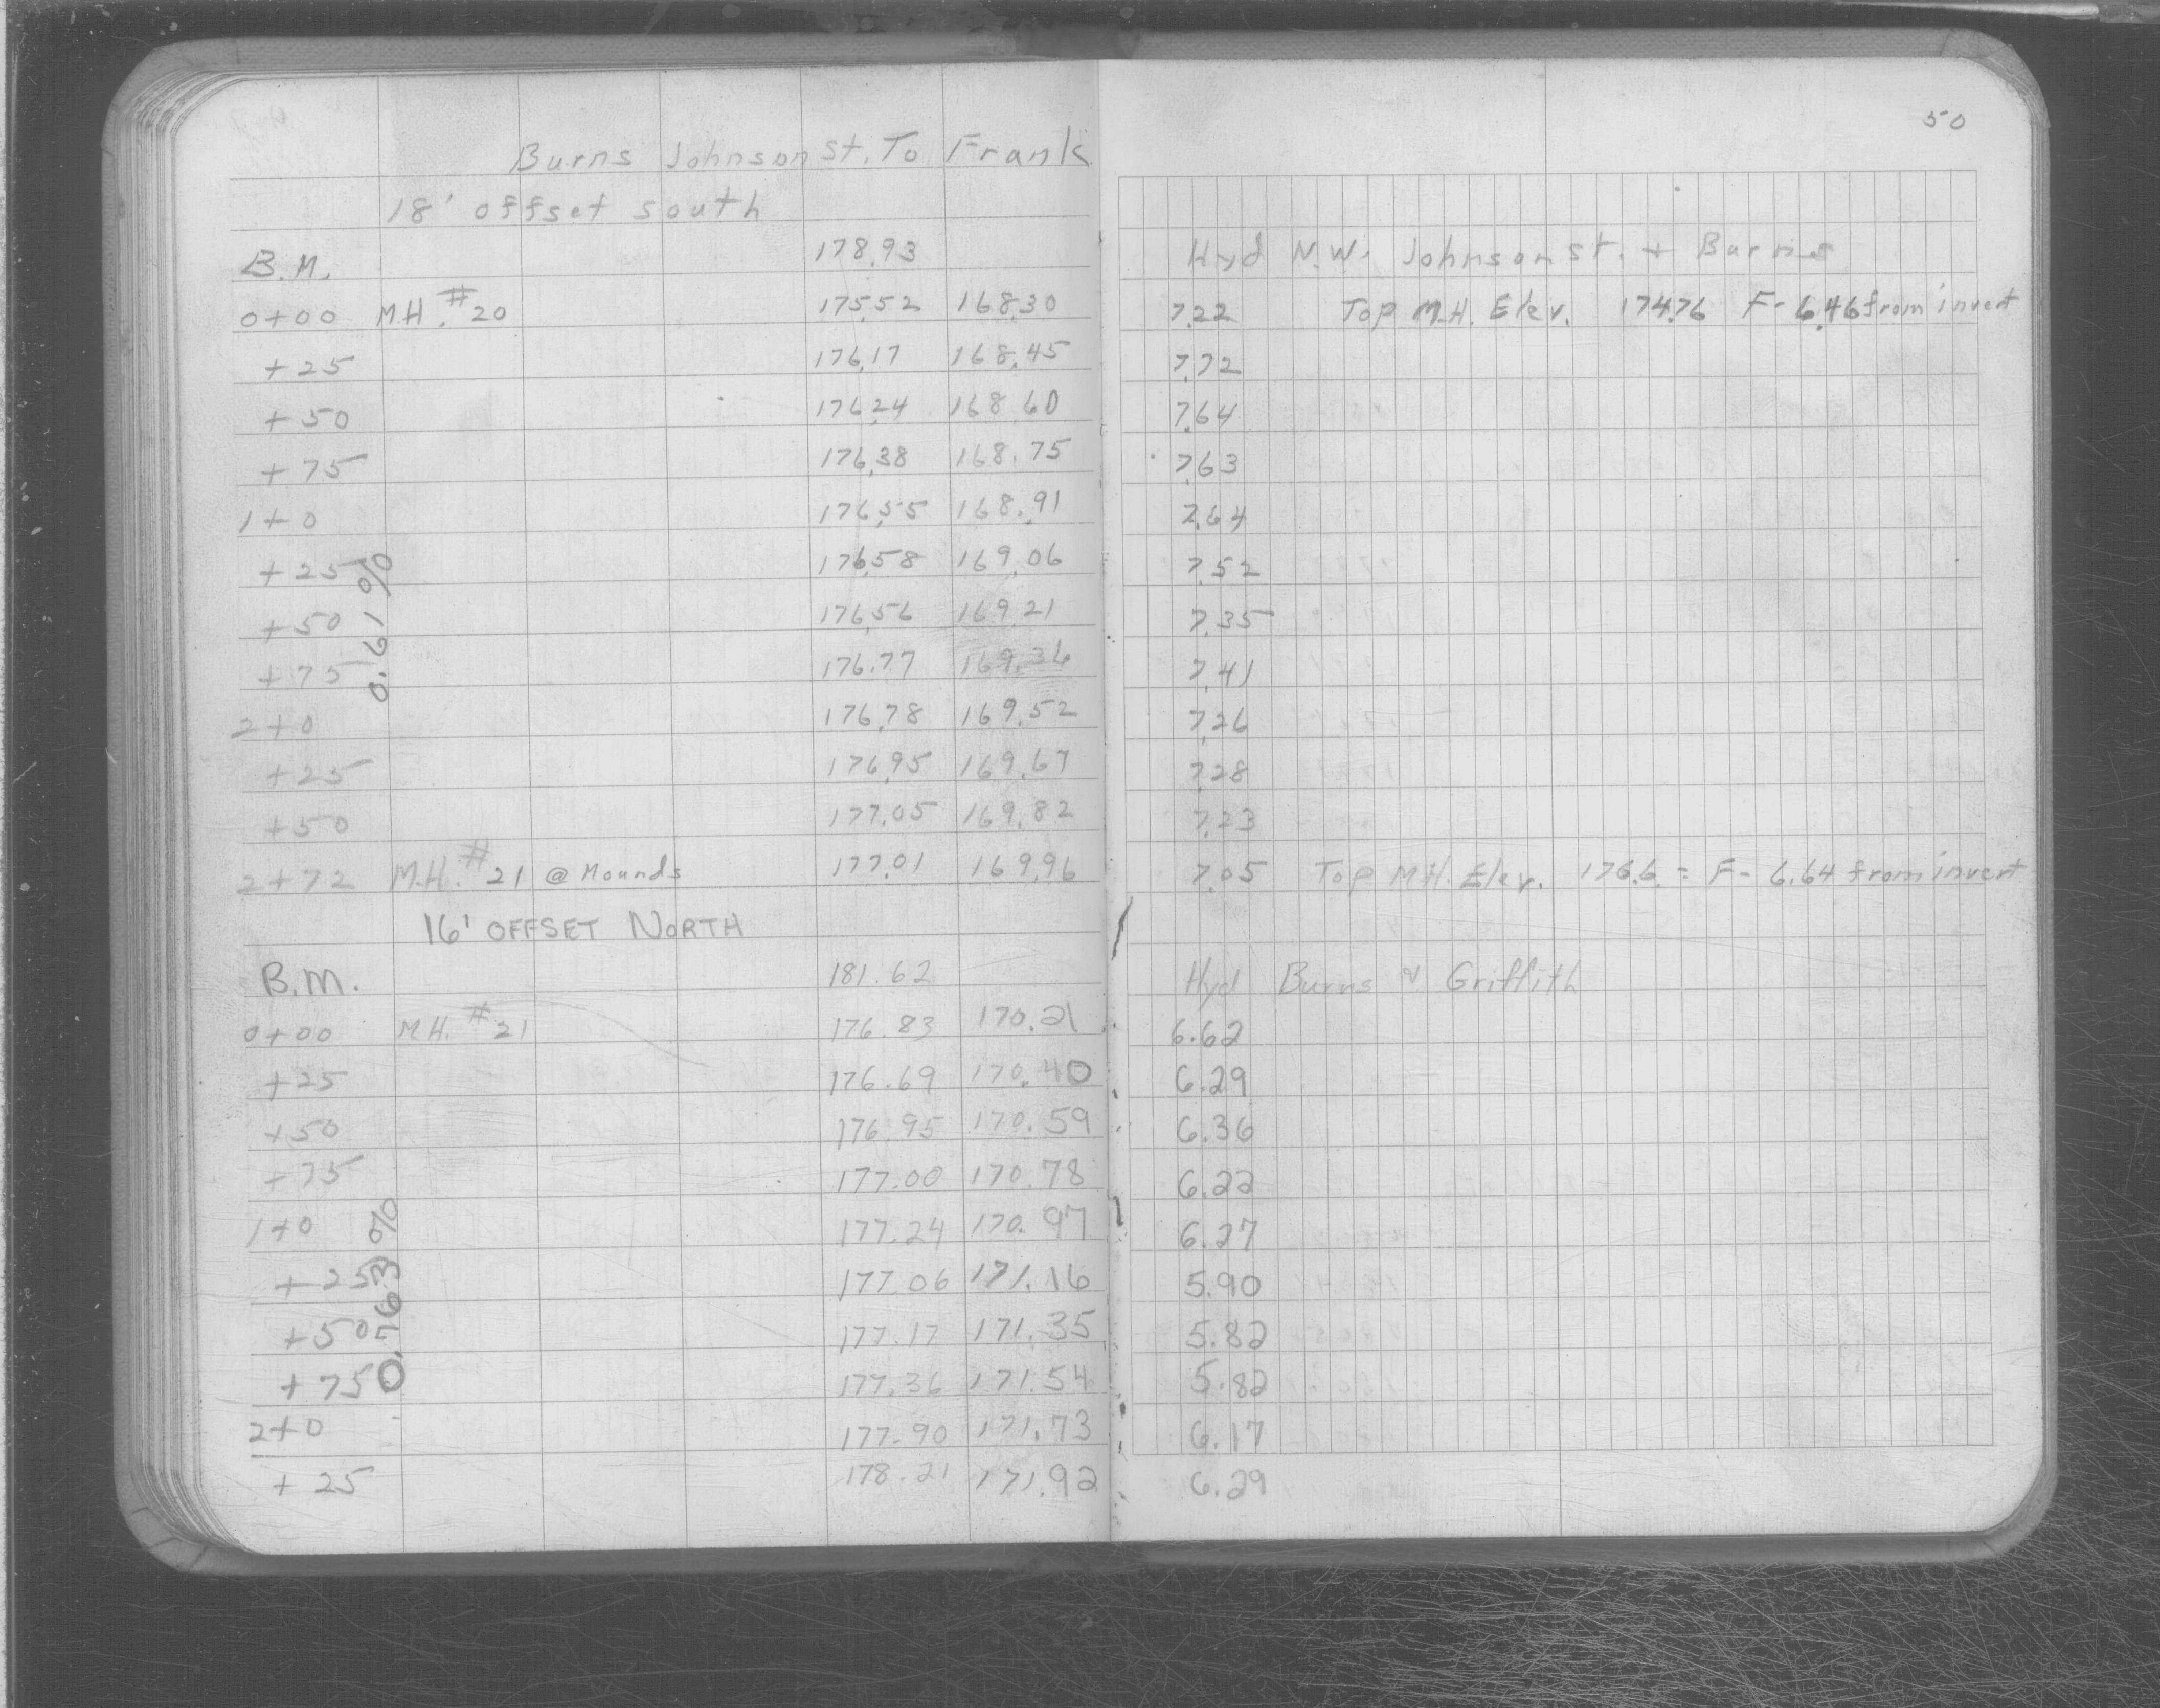 50
Burns Johnson St. To Frank
18' offset south
B.M. 178.93 Hyd N.W. Johnson St. + Burns
0+00 M.H. #20 175.52 168.30 7.22 Top M.H. Elev. 174.76 F- 6.46 from invert
+25 176.17 168.45 7.72
+50 176.24 168.60 7.64
+75 176.38 168.75 7.63
1+0 176.55 168.91 7.64
+25 176.58 169.06 7.52
+50 176.56 169.21 7.35
+75 176.77 169.36 7.41
0.61%
2+0 176.78 169.52 7.26
+25 176.95 169.67 7.28
+50 177.05 169.82 7.23
2+72 M.H. #21 @ Mounds 177.01 169.96 7.05 Top M.H. Elev. 176.6 = F- 6.64 from invert
16' OFFSET NORTH
B.M. 181.62 Hyd Burns & Griffith
0+00 M.H. #21 176.83 170.21 6.62
+25 176.69 170.40 6.29
+50 176.95 170.59 6.36
+75 177.00 170.78 6.22
1+0 177.24 170.97 6.27
+25 177.06 171.16 5.90
+50 177.17 171.35 5.82
+75 177.36 171.54 5.82
0.763%
2+0 177.90 171.73 6.17
+25 178.21 171.92 6.29